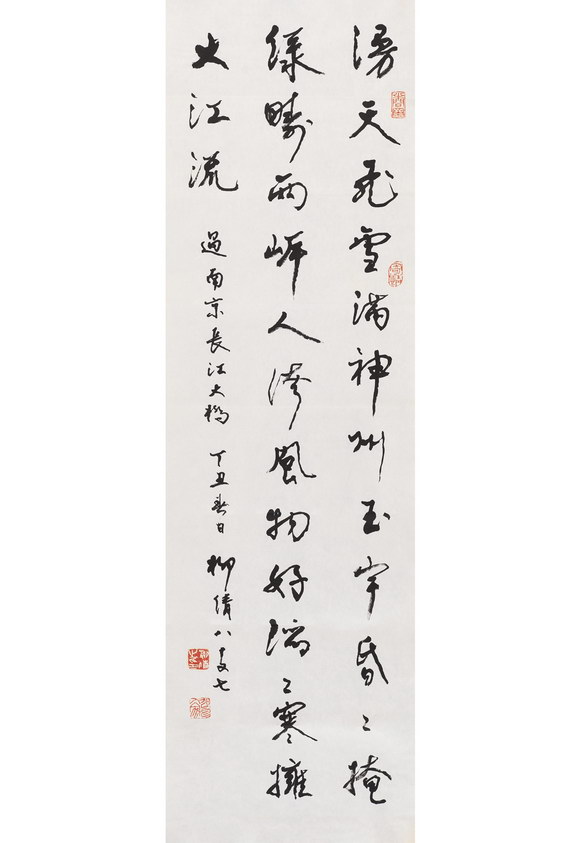 漫天飛雪滿神州玉宇昏〻掩
緑疇兩岸人誇風物好滔〻寒擁
大江流
過南京長江大橋 丁丑春日 柳倩八十又七